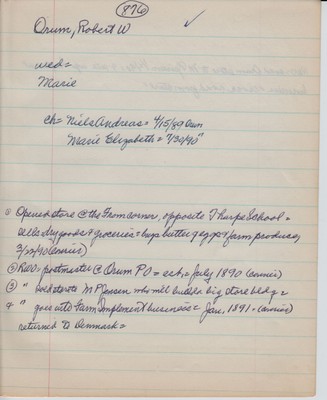 876
Orum, Robert W
wed=
Marie
ch= Niels Andreas = 4/15/89 Orum
Marie Elizabeth = 7/30/90"
① Opened store @ the From corner, opposite Tharpe School =
sells dry goods & groceries = buys butter & eggs & farm produce,
3/20/90 (courier)
② RWO = postmaster @ Orum PO = est, = July 1890 (courier)
③ " store to M P Jensen who will build a big store bldg =
4 " goes into Farm Implement business = Jan, 1891 = (courier)
returned to Denmark =